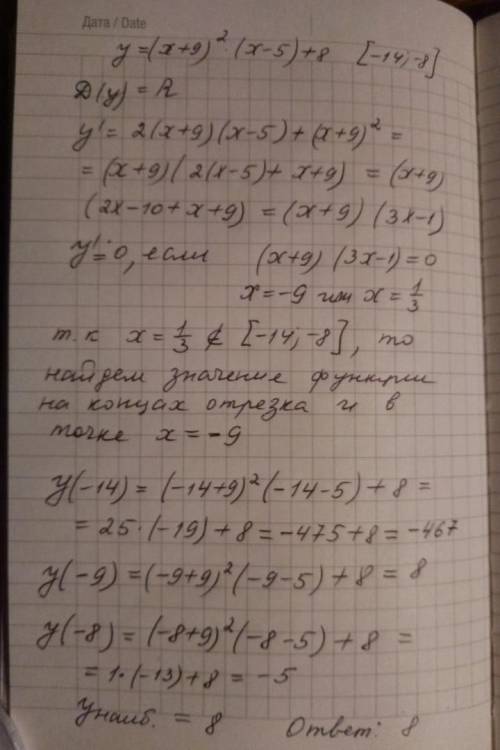 Дата / Date
y=(x+9)²·(x-5)+8 [-14;-8]
D(y) = R
y' = 2(x+9)(x-5)+(x+9)² =
= (x+9)(2(x-5)+x+9) = (x+9)
(2x-10+x+9) = (x+9)(3x-1)
y'=0, если (x+9)(3x-1)=0
x=-9 или x=1/3
т.к x=1/3 ∉ [-14;-8], то
найдем значение функции
на концах отрезка и в
точке x=-9
y(-14) = (-14+9)²(-14-5)+8 =
= 25·(-19)+8 = -475+8 = -467
y(-9) = (-9+9)²(-9-5)+8 = 8
y(-8) = (-8+9)²(-8-5)+8 =
= 1·(-13)+8 = -5
Yнаиб. = 8 Ответ: 8